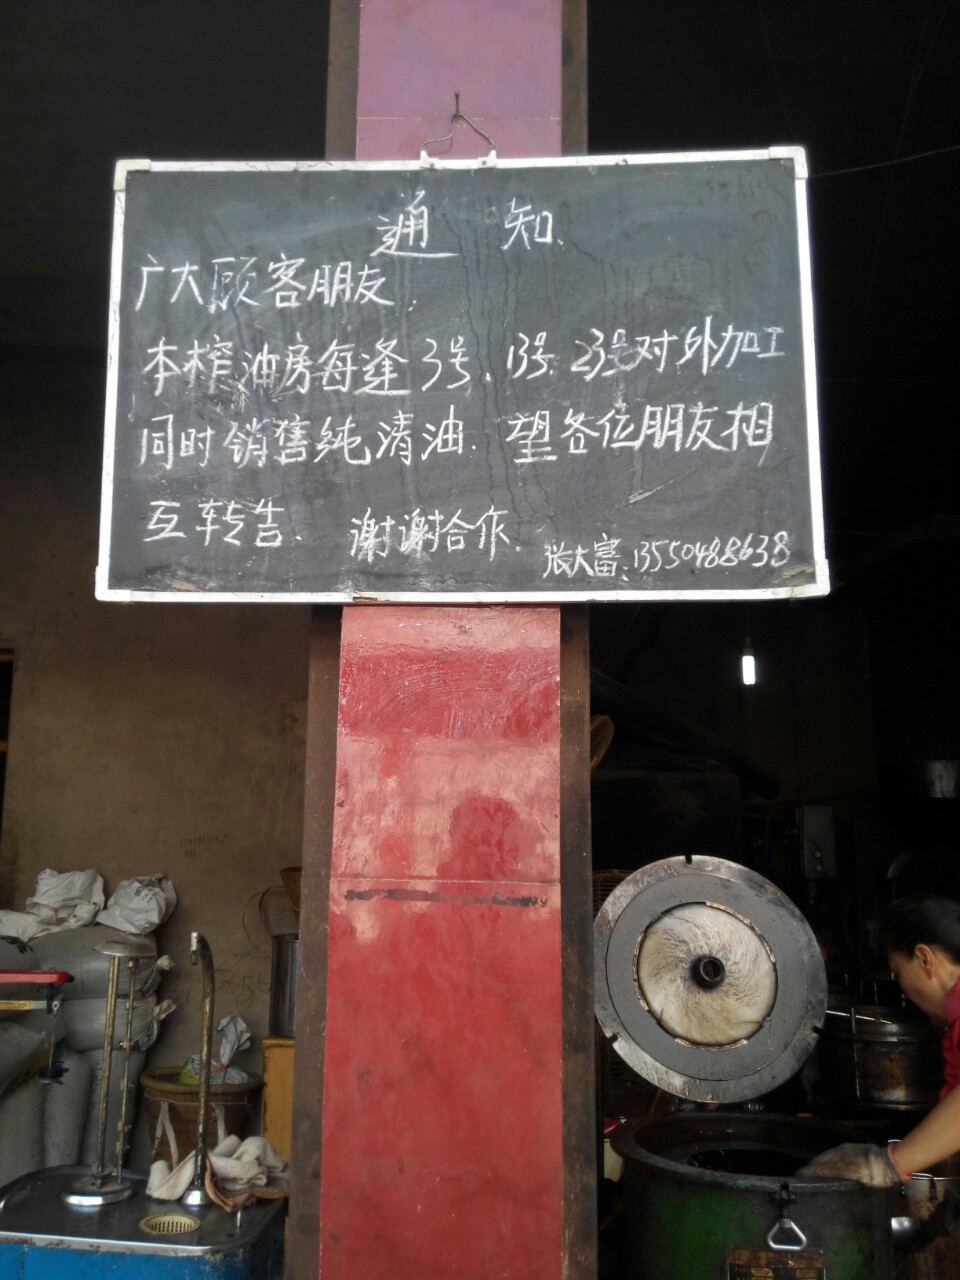 通知
广大顾客朋友,
本榨油房每逢3号、13号、23号对外加工
同时销售纯清油.望各位朋友相
互转告.谢谢合作.
张大富、13550488638